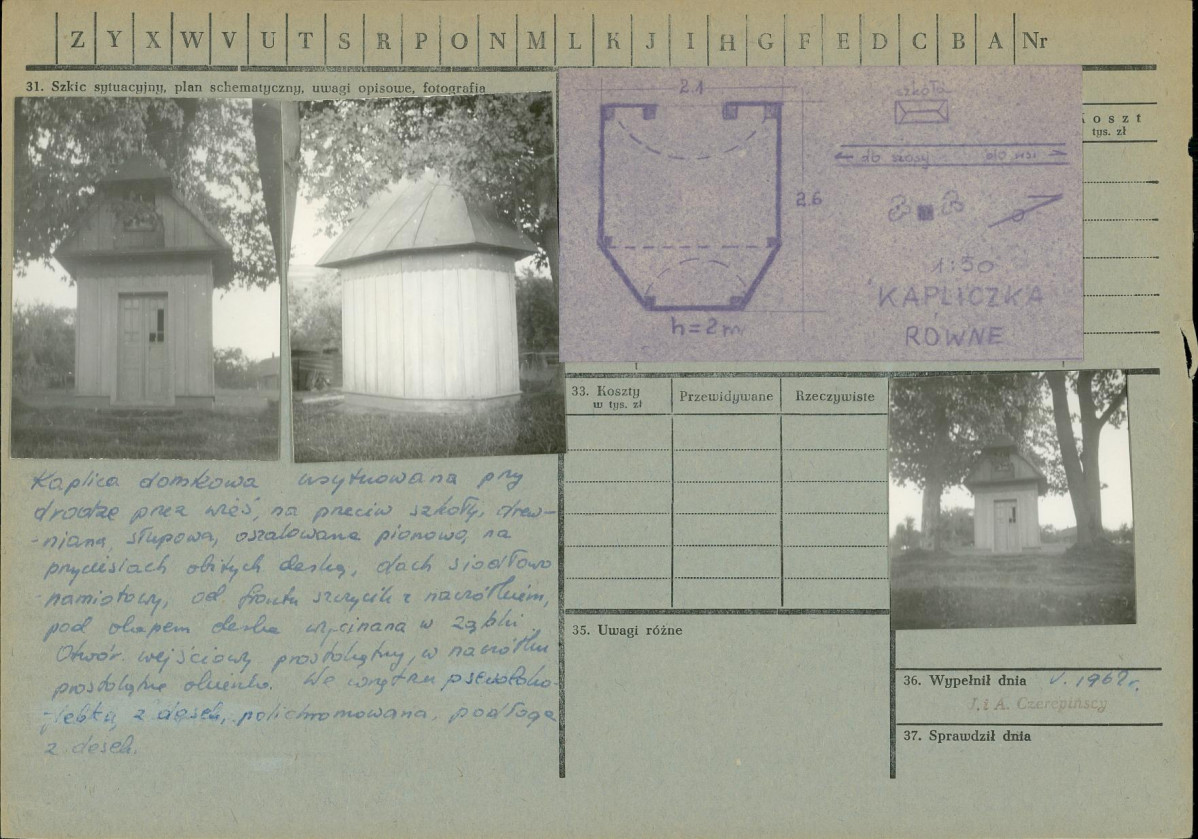 Z Y X W V U T S R P O N M L K J I H G F E D C B A Nr
31. Szkic sytuacyjny, plan schematyczny, uwagi opisowe, fotografia
2.1
2.6
h=2m
szkoła
do szosy do wsi
1:50
KAPLICZKA
RÓWNE
Koszt
tys. zł
Kaplica domkowa usytuowana przy
drodze przez wieś, na przeciw szkoły, drew-
-niana, słupowa, oszalowana pionowo, na
przyciesiach obitych deską, dach siodłowo
-namiotowy, od frontu szczycik z naczółkiem,
pod okapem deska wycinana w ząbki.
Otwór wejściowy prostokątny, w naczółku
prostokątne okienko. We wnętrzu pseudoko-
-lebka z desek, polichromowana, podłoga
z desek.
33. Koszty
w tys. zł
Przewidywane
Rzeczywiste
35. Uwagi różne
36. Wypełnił dnia V. 1969r.
J. i A. Czerepińscy
37. Sprawdził dnia